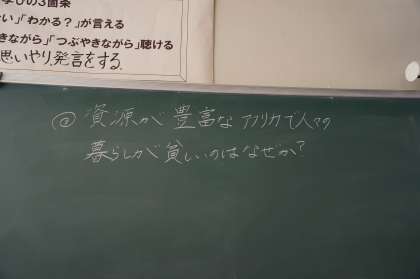 びの3箇条
い」「わかる?」が言える
きながら」「つぶやきながら」聴ける
思いやり、発言をする
資源が豊富なアフリカで人々の
暮らしが貧しいのはなぜか?